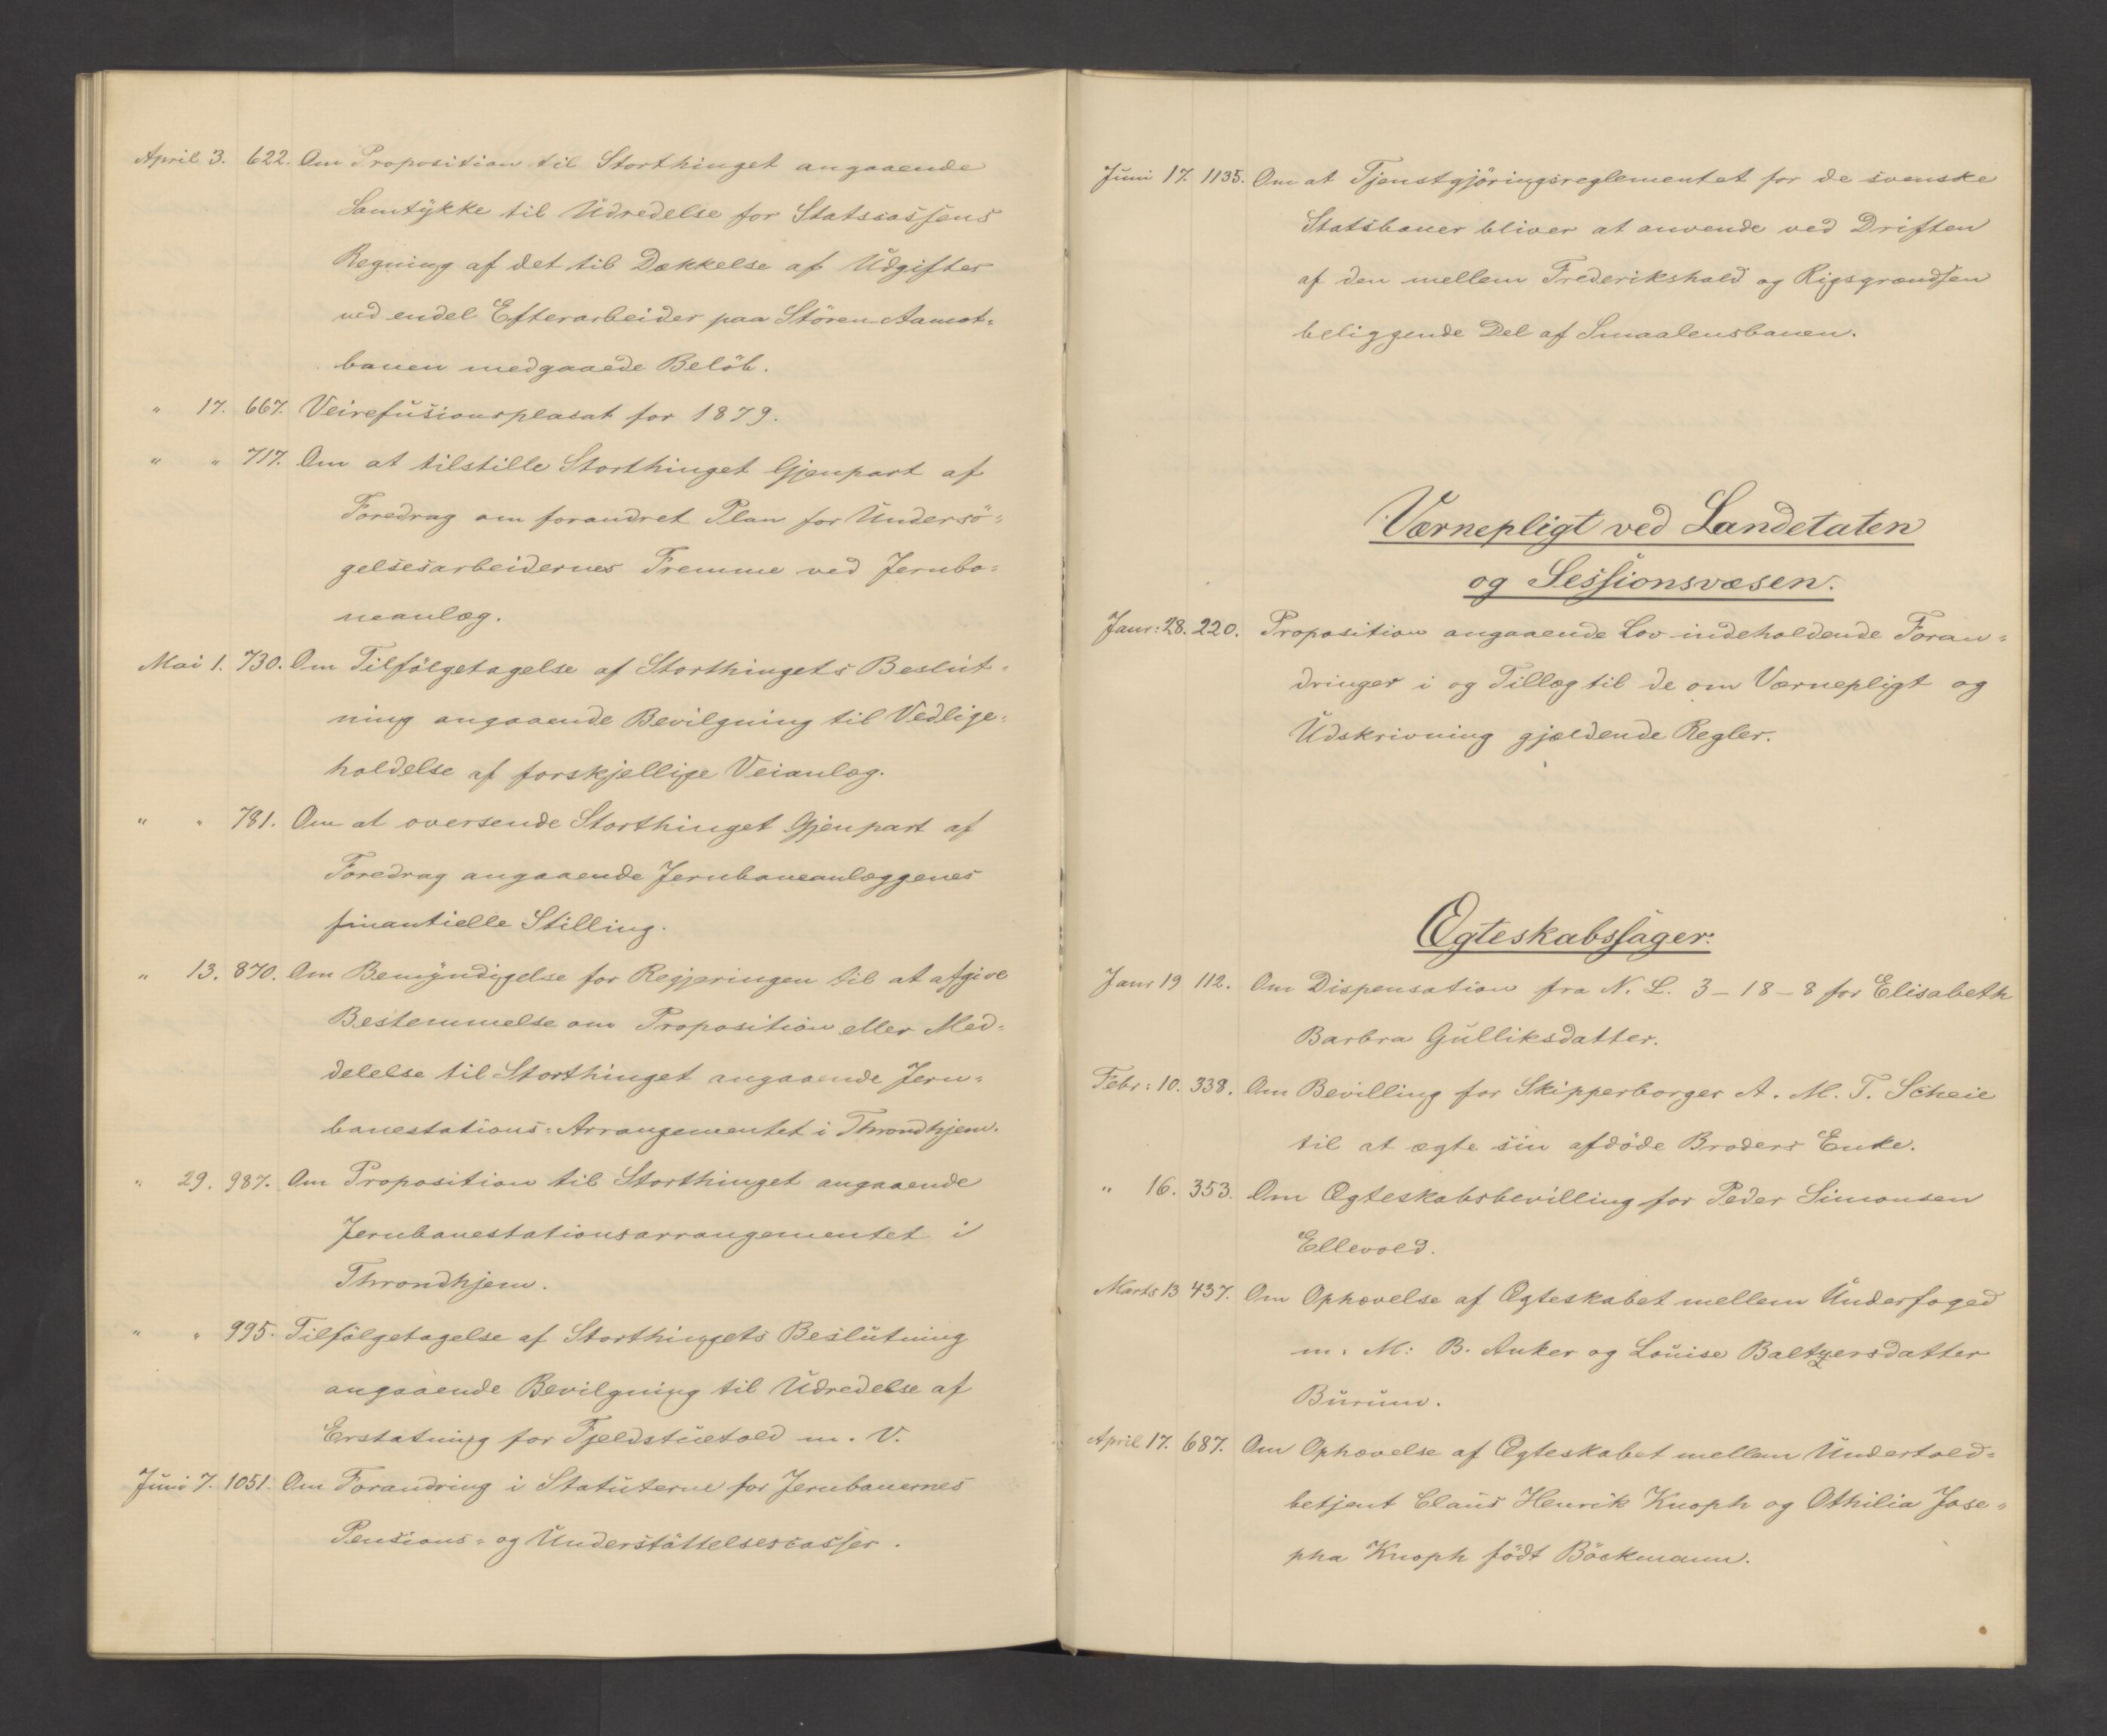 April 3. 622. Om Proposition til Storthinget angaaende
Samtykke til Udredelse for Statscassens
Regning af det til Dækkelse af Udgifter
ved endel Efterarbeider paa Stören-Aamot-
banen medgaaede Belöb.
" 17. 667. Veirefusionsplacat for 1879.
" " 717. Om at tilstille Storthinget Gjenpart af
Foredrag om forandret Plan for Undersö-
gelsesarbeidernes Fremme ved Jernba-
neanlæg.
Mai 1. 730. Om Tilfölgetagelse af Storthingets Beslut-
ning angaaende Bevilgning til Vedlige-
holdelse af forskjellige Veianlæg.
" " 781. Om at oversende Storthinget Gjenpart af
Foredrag angaaende Jernbaneanlæggenes
finantielle Stilling.
" 13. 870. Om Bemyndigelse for Regjeringen til at afgive
Bestemmelse om Proposition eller Med-
delelse til Storthinget angaaende Jern-
banestations-Arrangementet i Throndhjem.
" 29. 987. Om Proposition til Storthinget angaaende
Jernbanestationsarrangementet i
Throndhjem.
" " 995. Tilfölgetagelse af Storthingets Beslutning
angaaende Bevilgning til Udredelse af
Erstatning for Fjeldstuetold m. V.
Juni 7. 1051. Om Forandring i Statuterne for Jernbanernes
Pensions- og Understöttelsescasser.
Juni 17. 1135. Om at Tjenstgjöringsreglementet for de svenske
Statsbaner bliver at anvende ved Driften
af den mellem Frederikshald og Rigsgrændsen
beliggende Del af Smaalensbanen.
Værnepligt ved Landetaten
og Sessionsvæsen.
Janr: 28. 220. Proposition angaaende Lov indeholdende Foran-
dringer i og Tillæg til de om Værnepligt og
Udskrivning gjældende Regler.
Ægteskabssager.
Janr 19 112. Om Dispensation fra N. L. 3-18-8 for Elisabeth
Barbra Gulliksdatter.
Febr: 10. 338. Om Bevilling for Skipperborger A. M. T. Scheie
til at ægte sin afdöde Broders Enke.
" 16. 353. Om Ægteskabsbevilling for Peder Simonsen
Ellevold.
Marts 13 437. Om Ophævelse af Ægteskabet mellem Underfoged
m. M: B. Anker og Louise Baltzersdatter
Burum.
April 17. 687. Om Ophævelse af Ægteskabet mellem Undertold-
betjent Claus Henrik Knoph og Othilia Jose-
pha Knoph födt Böckmann.